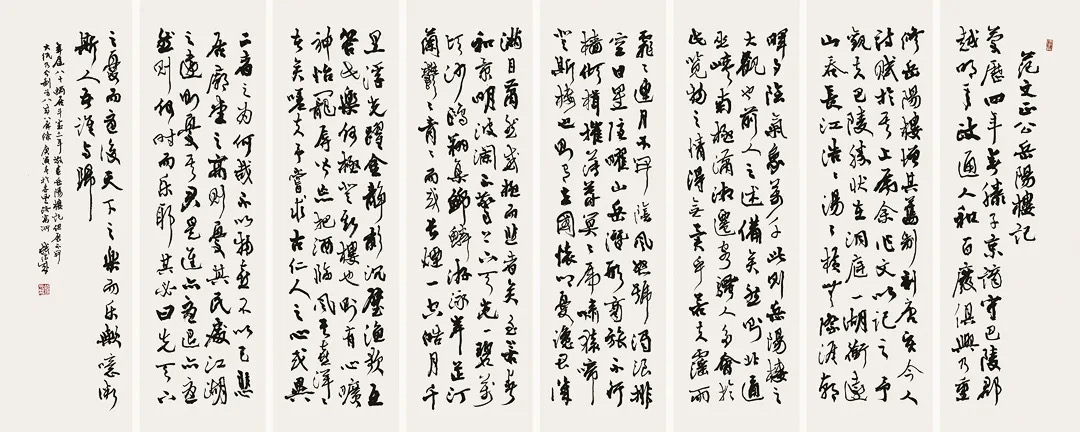 范文正公岳陽樓記
慶曆四年春滕子京謫守巴陵郡
越明年政通人和百廢俱興乃重
修岳陽樓增其舊制刻唐賢今人
詩賦於其上屬余作文以記之予
觀夫巴陵勝狀在洞庭一湖銜遠
山吞長江浩浩湯湯橫無際涯朝
暉夕陰氣象萬千此則岳陽樓之
大觀也前人之述備矣然則北通
巫峽南極瀟湘遷客騷人多會於
此覽物之情得無異乎若夫霪雨
霏霏連月不開陰風怒號濁浪排
空日星隱曜山岳潛形商旅不行
檣傾楫摧薄暮冥冥虎嘯猿啼
登斯樓也則有去國懷鄉憂讒畏譏
滿目蕭然感極而悲者矣至若春
和景明波瀾不驚上下天光一碧萬
頃沙鷗翔集錦鱗游泳岸芷汀
蘭鬱鬱青青而或長煙一空皓月千
里浮光躍金靜影沉璧漁歌互
答此樂何極登斯樓也則有心曠
神怡寵辱皆忘把酒臨風其喜洋洋
者矣嗟夫予嘗求古仁人之心或異
二者之為何哉不以物喜不以己悲
居廟堂之高則憂其民處江湖
之遠則憂其君是進亦憂退亦憂
然則何時而乐耶其必曰先天下
之憂而憂後天下之樂而乐歟噫微
斯人吾誰與歸